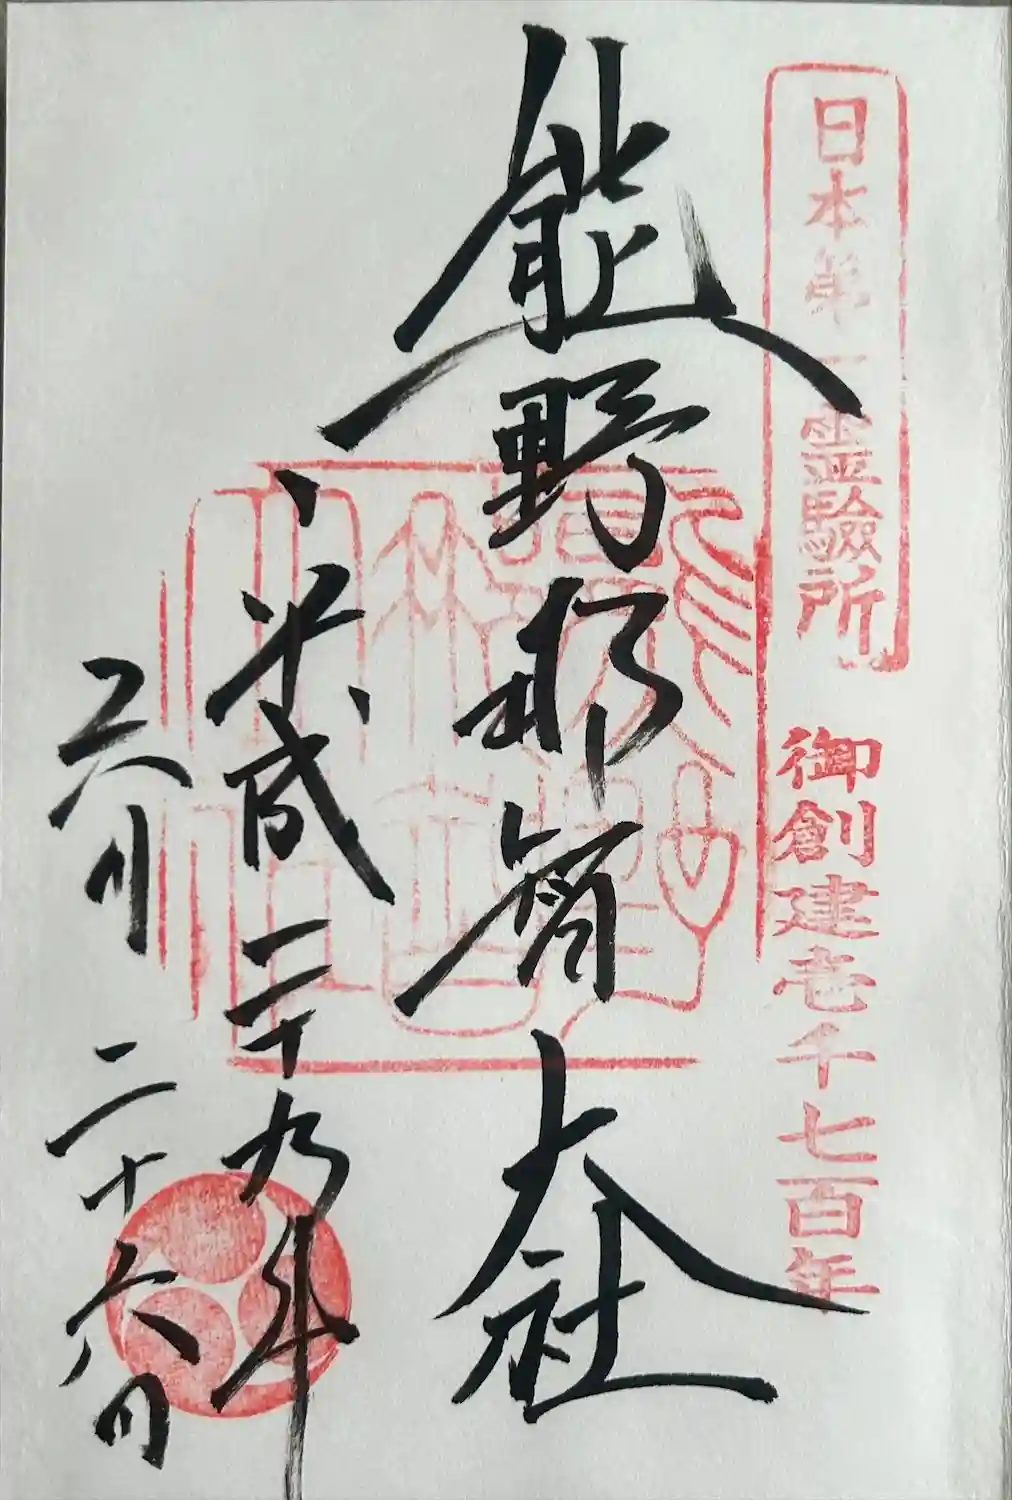 日本第一霊験所
御創建壱千七百年
熊野那智大社
平成二十九年
六月二十六日